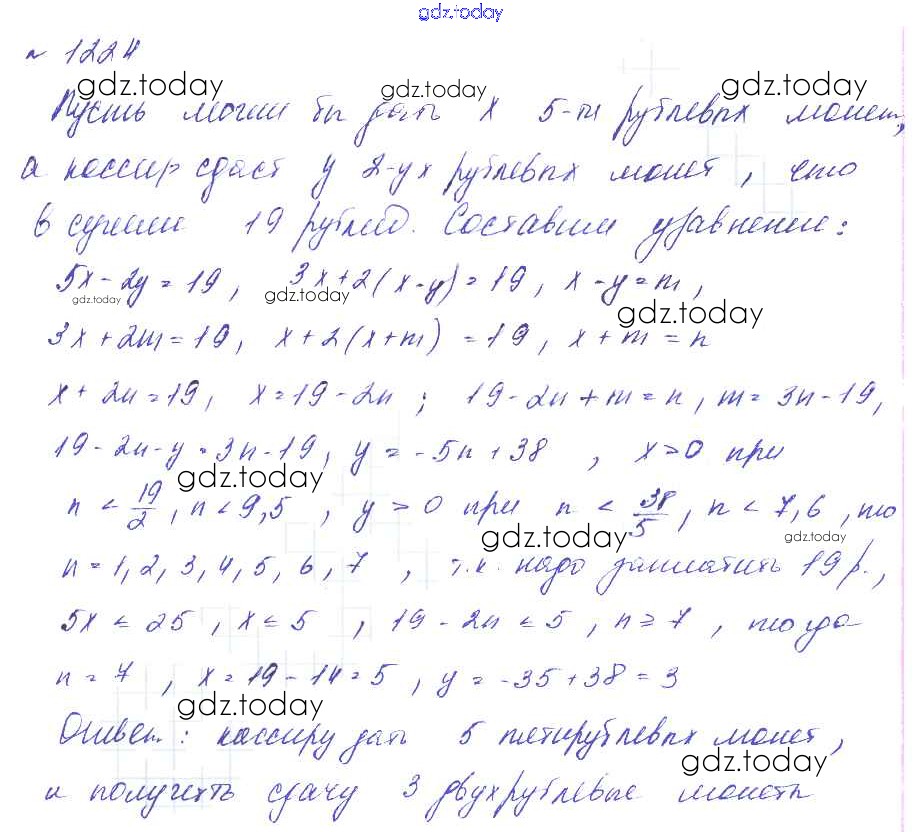 gdz.today
№ 1224
gdz.today gdz.today
Пусть могли бы дать x 5-ти рублевых монет,
а кассир сдаст y 2-ух рублевых монет, что
в сумме 19 рублей. Составим уравнение:
5x-2y=19, 3x+2(x-y)=19, x-y=m,
gdz.today gdz.today gdz.today
3x+2m=19, x+2(x+m)=19, x+m=n
x+2n=19, x=19-2n; 19-2n+m=n, m=3n-19,
19-2n-y=3n-19, y=-5n+38, x>0 при
gdz.today
n < 19/2, n<9,5, y>0 при n < 38/5, n<7,6, то
gdz.today gdz.today
n=1,2,3,4,5,6,7, т.к. надо заплатить 19 р.,
5x ≤ 25, x ≤ 5, 19-2n ≤ 5, n ≥ 7, тогда
n=7, x=19-14=5, y=-35+38=3
gdz.today
Ответ: кассиру дать 5 пятирублевых монет,
gdz.today
и получить сдачу 3 двухрублевые монеты